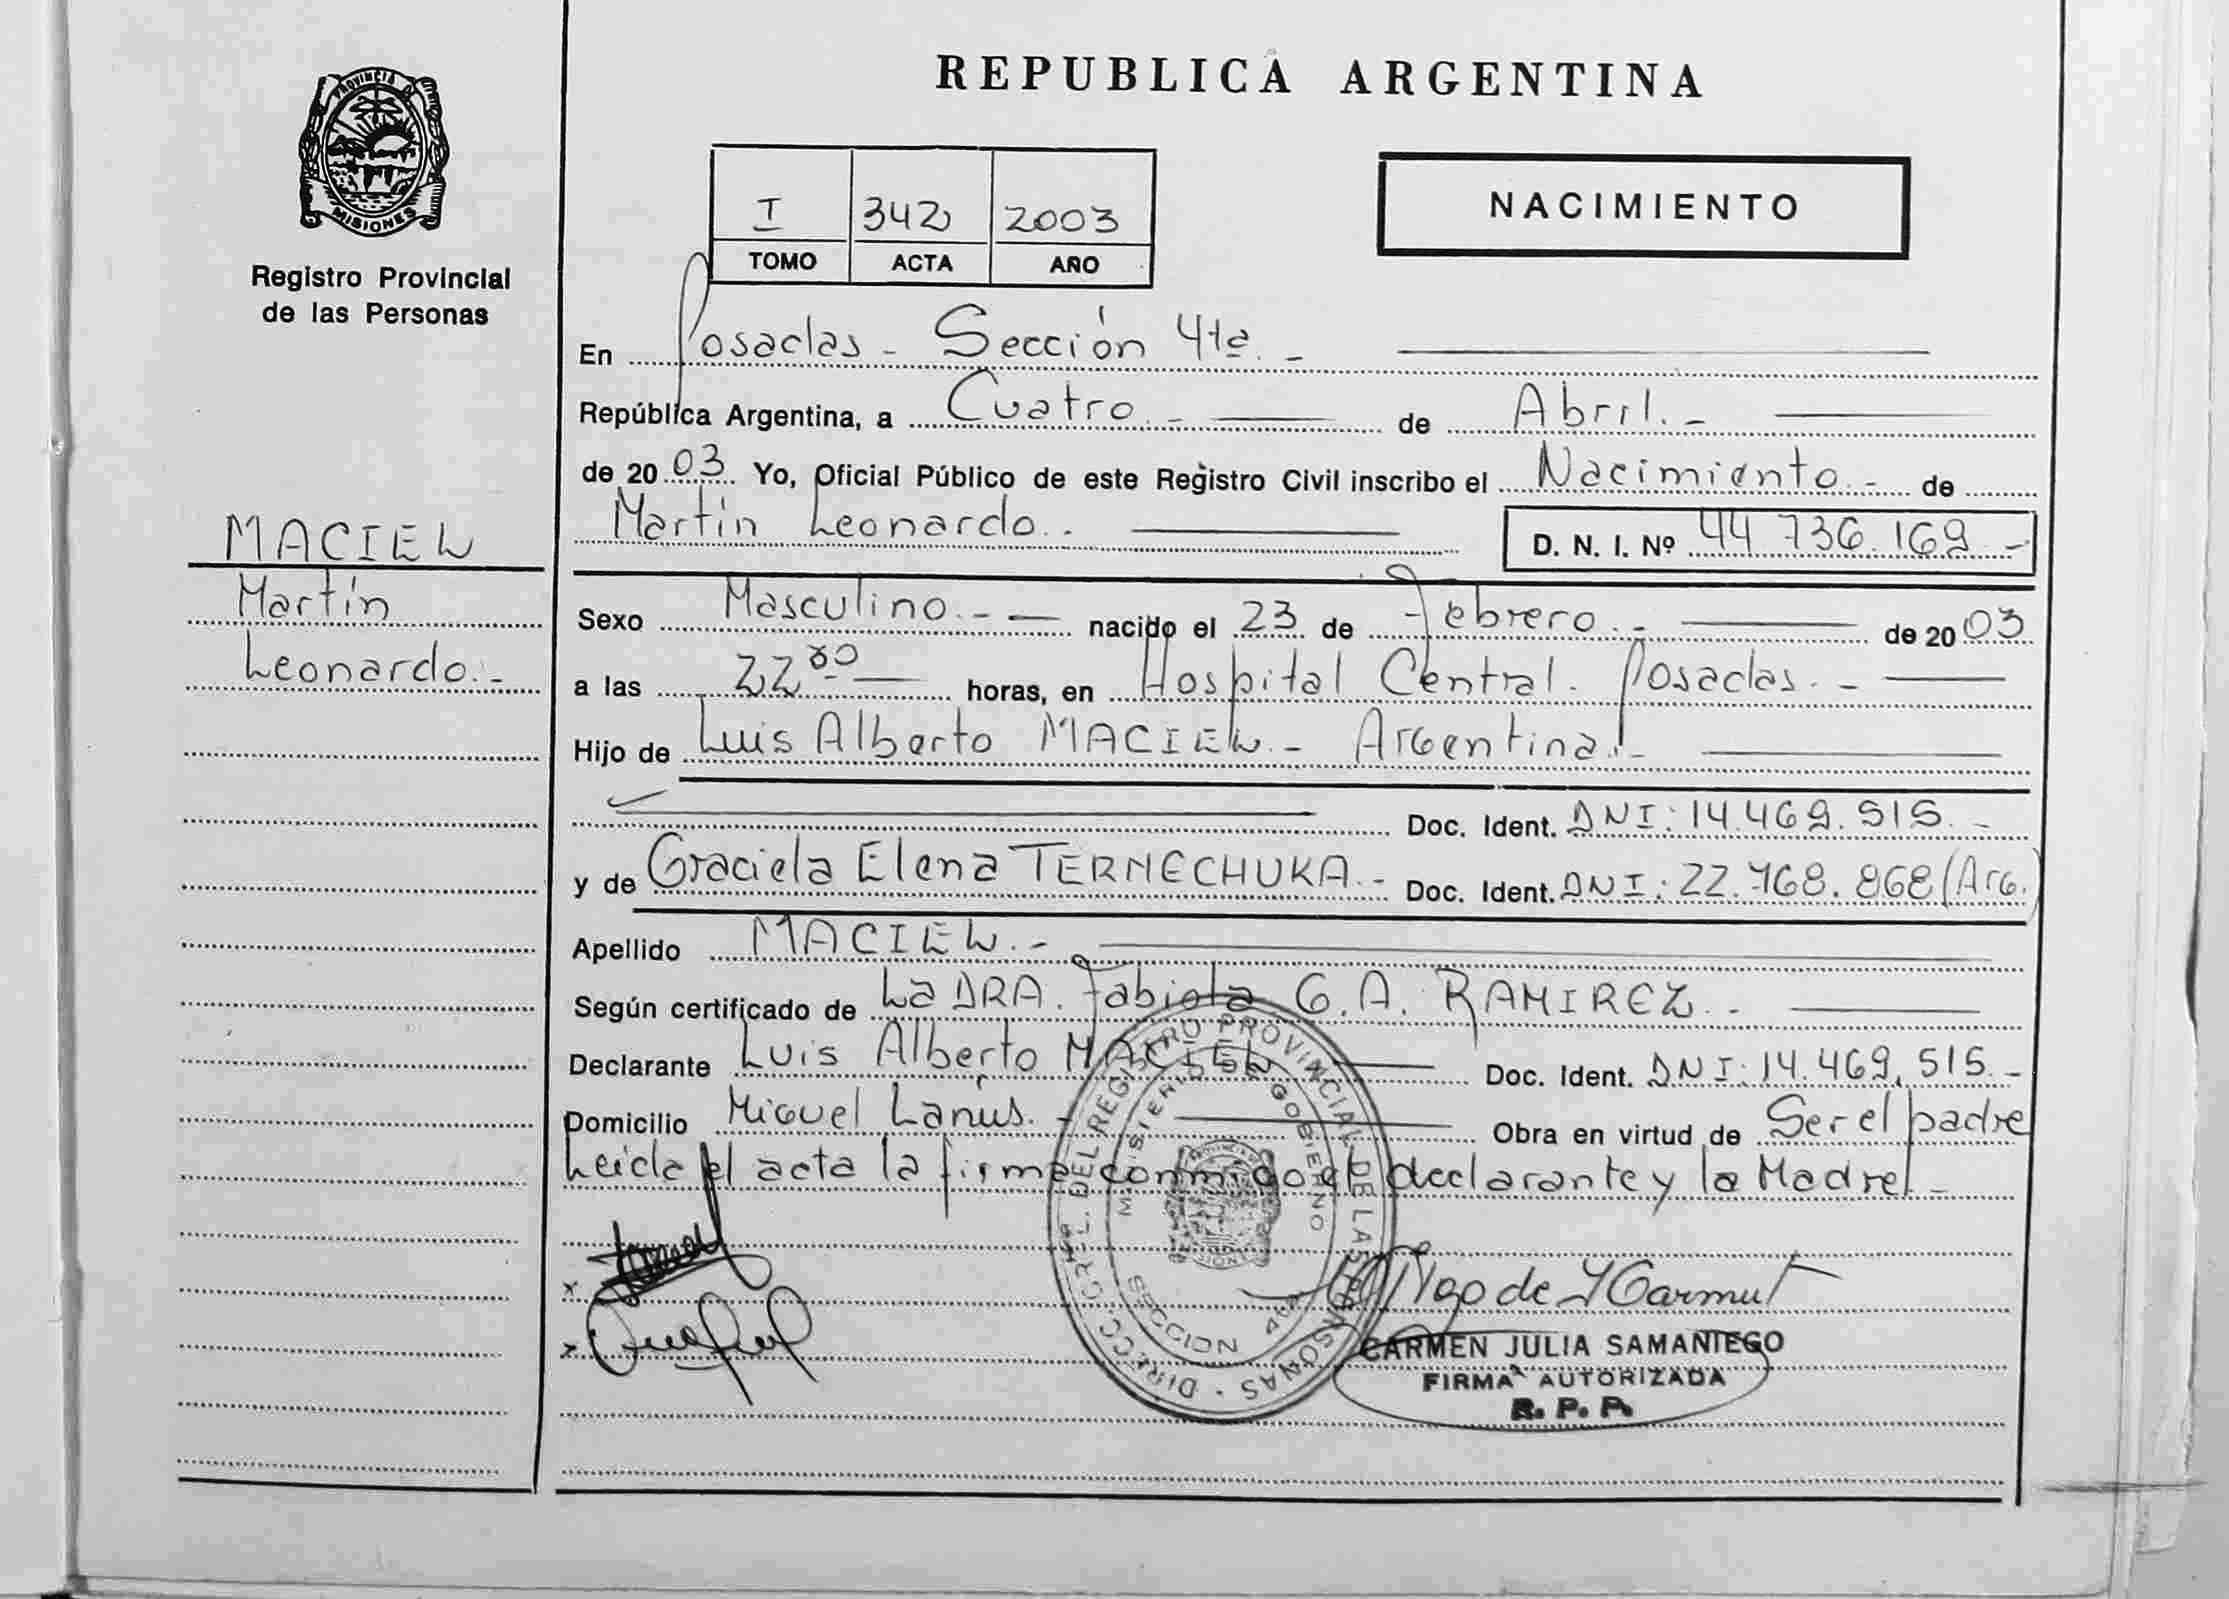 REPUBLICA ARGENTINA
PROVINCIA DE
MISIONES
Registro Provincial
de las Personas
I 342 2003
TOMO ACTA AÑO
NACIMIENTO
MACIEL
Martín
Leonardo.-
En Posadas - Sección 4ta. -
República Argentina, a Cuatro.- de Abril.-
de 2003 Yo, Oficial Público de este Registro Civil inscribo el Nacimiento.- de
Martín Leonardo.- D. N. I. Nº 44 736.169.-
Sexo Masculino.- nacido el 23 de Febrero.- de 2003
a las 22 30 horas, en Hospital Central. Posadas.-
Hijo de Luis Alberto MACIEL.- Argentina.-
Doc. Ident. DNI: 14.469.515.-
y de Graciela Elena TERNECHUKA.- Doc. Ident. DNI: 22.768.868 (Arg.
Apellido MACIEL.-
Según certificado de La DRA. Fabiola G.A. RAMIREZ.-
Declarante Luis Alberto MACIEL Doc. Ident. DNI: 14.469.515.-
Domicilio Miguel Lanús.- Obra en virtud de Ser el padre
Leida el acta la firma conmigo el declarante y la Madre.-
DIRECC. GRAL. DEL REGISTRO PROVINCIAL DE LAS PERSONAS
GOBIERNO
SECCION 4ta
CARMEN JULIA SAMANIEGO
FIRMA AUTORIZADA
R. P. P.